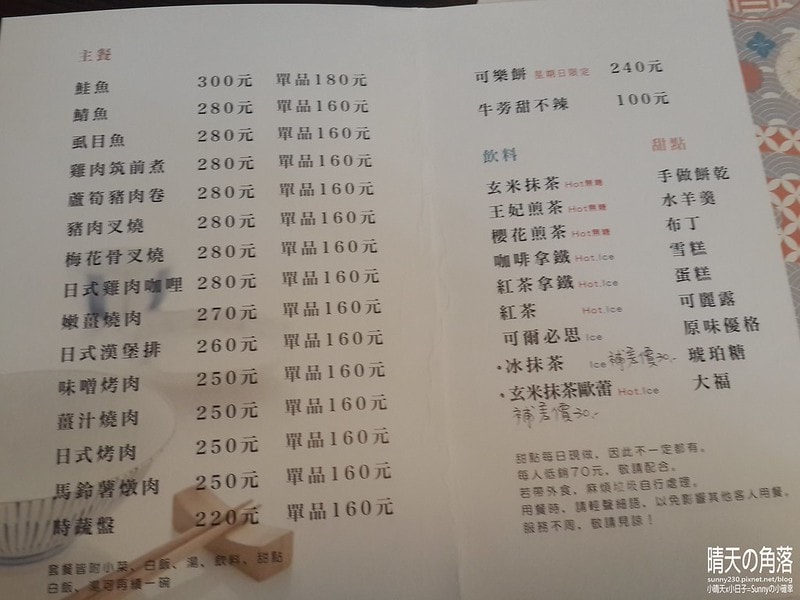 主餐
鮭魚 300元 單品180元
鯖魚 280元 單品160元
虱目魚 280元 單品160元
雞肉筑前煮 280元 單品160元
蘆筍豬肉卷 280元 單品160元
豬肉叉燒 280元 單品160元
梅花骨叉燒 280元 單品160元
日式雞肉咖哩 280元 單品160元
嫩薑燒肉 270元 單品160元
日式漢堡排 260元 單品160元
味噌烤肉 250元 單品160元
薑汁燒肉 250元 單品160元
日式烤肉 250元 單品160元
馬鈴薯燉肉 250元 單品160元
時蔬盤 220元 單品160元
套餐皆附小菜、白飯、湯、飲料、甜點
白飯、湯可再續一碗
可樂餅 星期日限定 240元
牛蒡甜不辣 100元
飲料
玄米抹茶 Hot無糖
王妃煎茶 Hot無糖
櫻花煎茶 Hot無糖
咖啡拿鐵 Hot.Ice
紅茶拿鐵 Hot.Ice
紅茶 Hot.Ice
可爾必思 Ice
·冰抹茶 Ice 補差價30.-
·玄米抹茶歐蕾 Hot.Ice
補差價30.-
甜點
手做餅乾
水羊羹
布丁
雪糕
蛋糕
可麗露
原味優格
琥珀糖
大福
甜點每日現做，因此不一定都有。
每人低銷70元，敬請配合。
若帶外食，麻煩垃圾自行處理。
用餐時，請輕聲細語，以免影響其他客人用餐。
服務不周，敬請見諒！
晴天の角落
sunny230.pixnet.net/blog
小晴天x小日子=Sunnyの小確幸